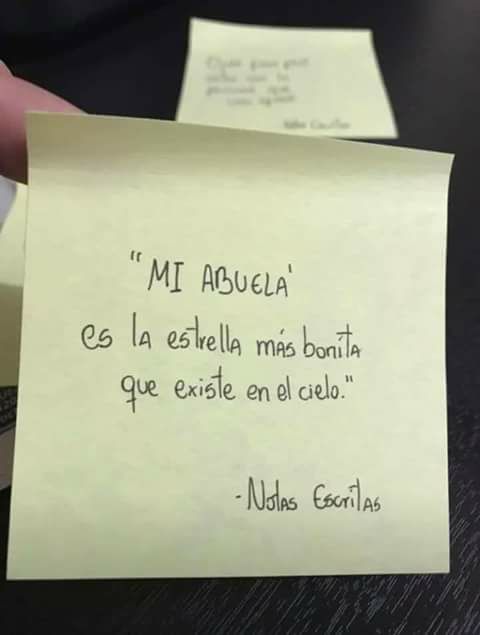 "MI ABUELA'
es la estrella más bonita
que existe en el cielo."
-Notas Escritas